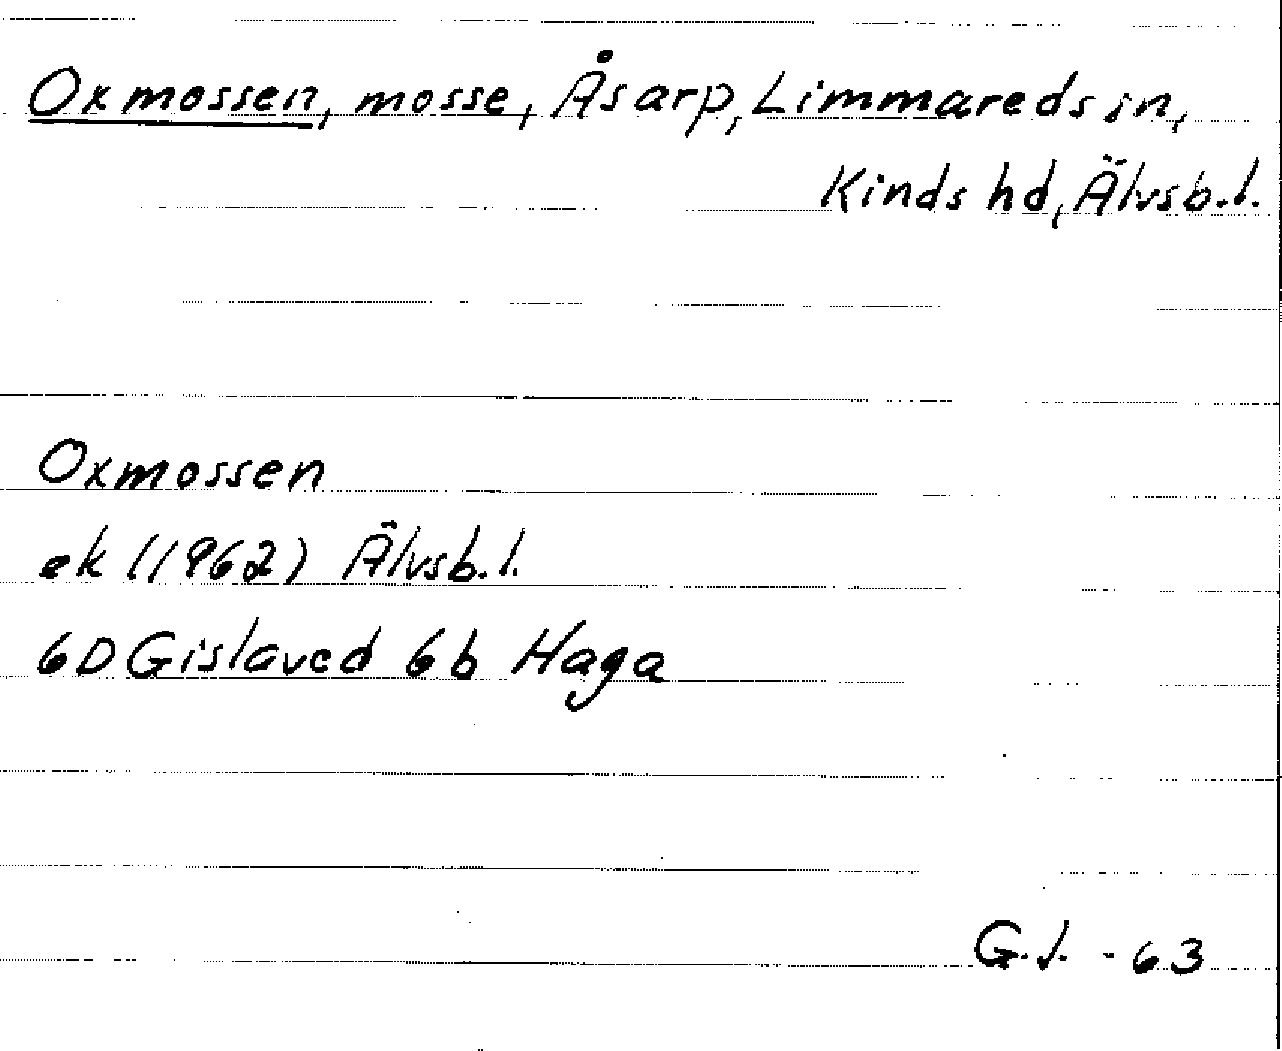 Oxmossen, mosse, Åsarp, Limmareds sn,
Kinds hd, Älvsb.l.
Oxmossen
ek (1962) Älvsb.l.
6D Gislaved 6b Haga
G.J. -63